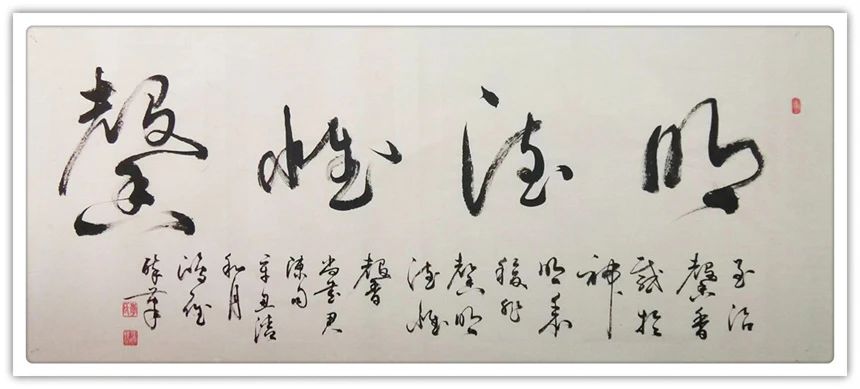 明德惟馨
至治
馨香
感於
神
明黍
稷非
馨明
德惟
馨
尚書君
陳句
辛丑清
和月
鴻
醉筆